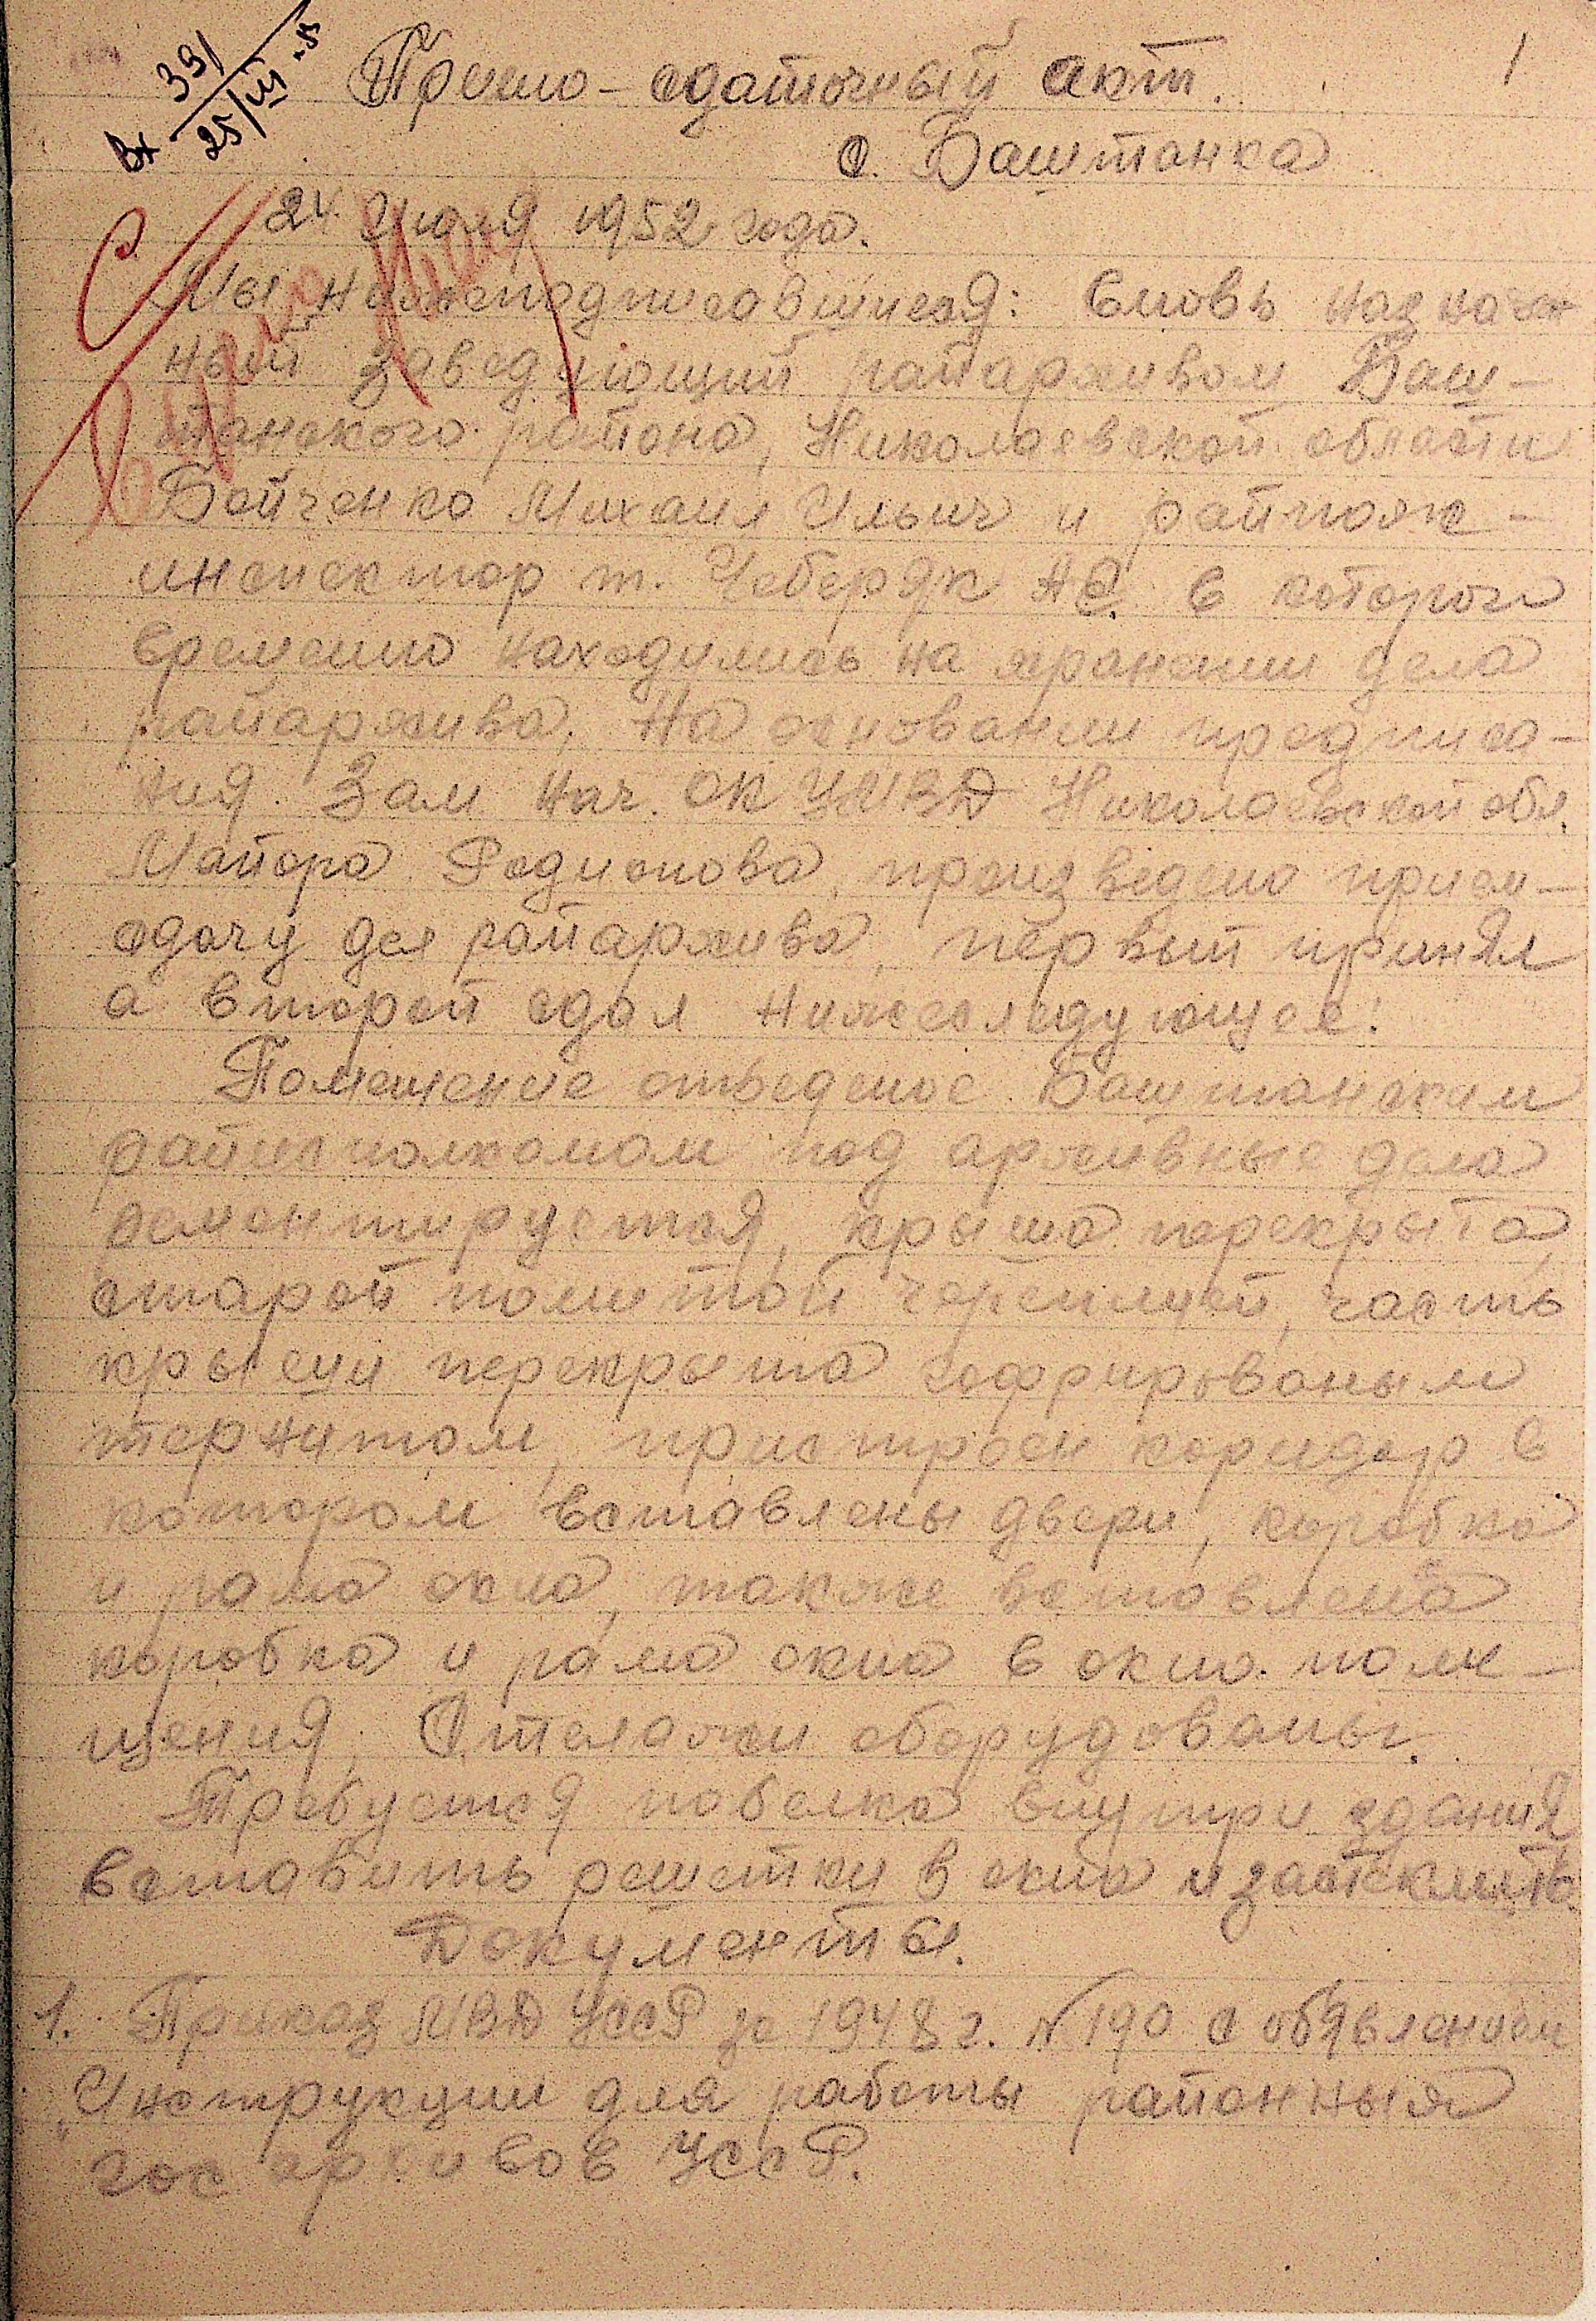 Вх 391
25/VII-5
1
Приемо-сдаточный акт.
с. Баштанка
24 Июля 1952 года.
Мы нижеподписавшиеся: вновь назначен
ный заведующий райархивом Баш-
танского района, Николаевской области
Бойченко Михаил Ильич и райпож-
инспектор т. Чебердяк А.С. в которой
временно находились на хранении дела
райархива. На основании предписа-
ния Зам. Нач. ОК УМВД Николаевской обл.
Майора Родионова, произведено прием-
сдачу дел райархива, первый принял
а второй сдал нижеследующее:
Помещение отведеное Баштанским
райисполкомом под архивные дела
ремонтируется, крыша перекрыта
старой политой черепицей, часть
крыши перекрыта гофрированым
тернитом, пристроен коридор в
котором вставлены двери, коробка
и рама окна, также вставлена
коробка и рама окна в окно поме-
щения. Стелажи оборудованы.
Требуется побелка внутри здания
вставить решетки в окна и застеклить.
Документы.
1. Приказ МВД УССР за 1948 г. №190 с объявлением
"Инструкции для работы районных
гос архивов УССР.